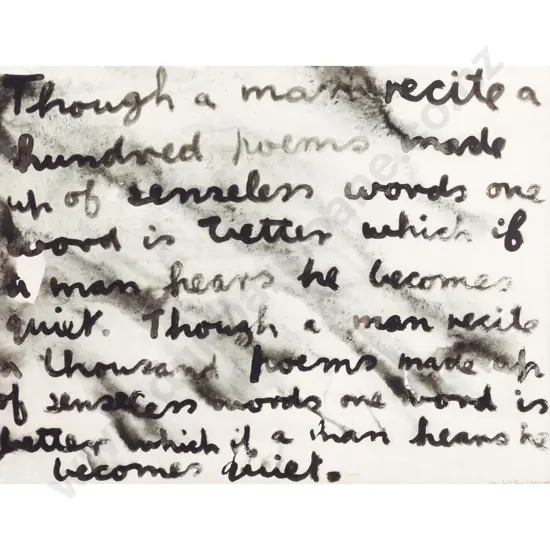 Though a man recite a
hundred poems made
up of senseless words one
word is better which if
a man hears he becomes
quiet. Though a man recite
a thousand poems made up
of senseless words one word is
better which if a man hears he
becomes quiet.